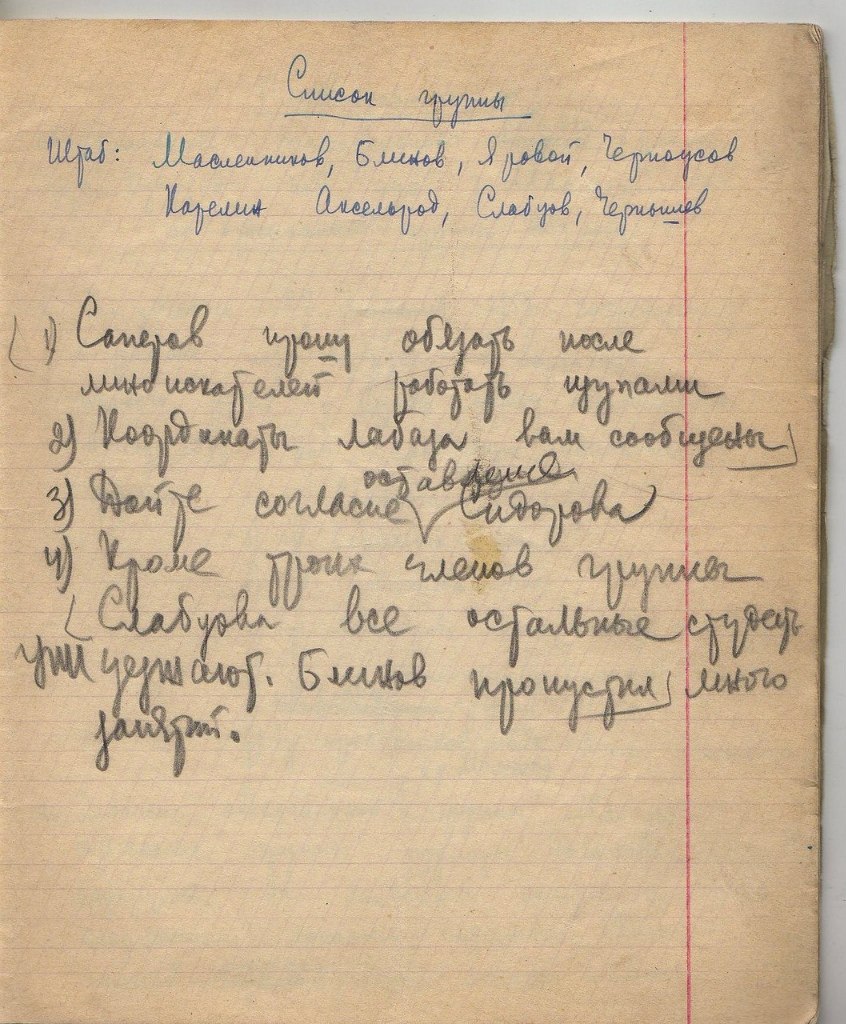 Список группы
Штаб: Масленников, Блинов, Яровой, Черноусов
Карелин Аксельрод, Слабцов, Чернышев
(1) Саперов прошу обязать после
миноискателей работать щупами
2) Координаты лабаза вам сообщены)
оставление
3) Дайте согласие Сидорова
4) Кроме троих членов группы
(Слабцова все остальные студенты
уезжают. Блинов пропустил) много
занятий.